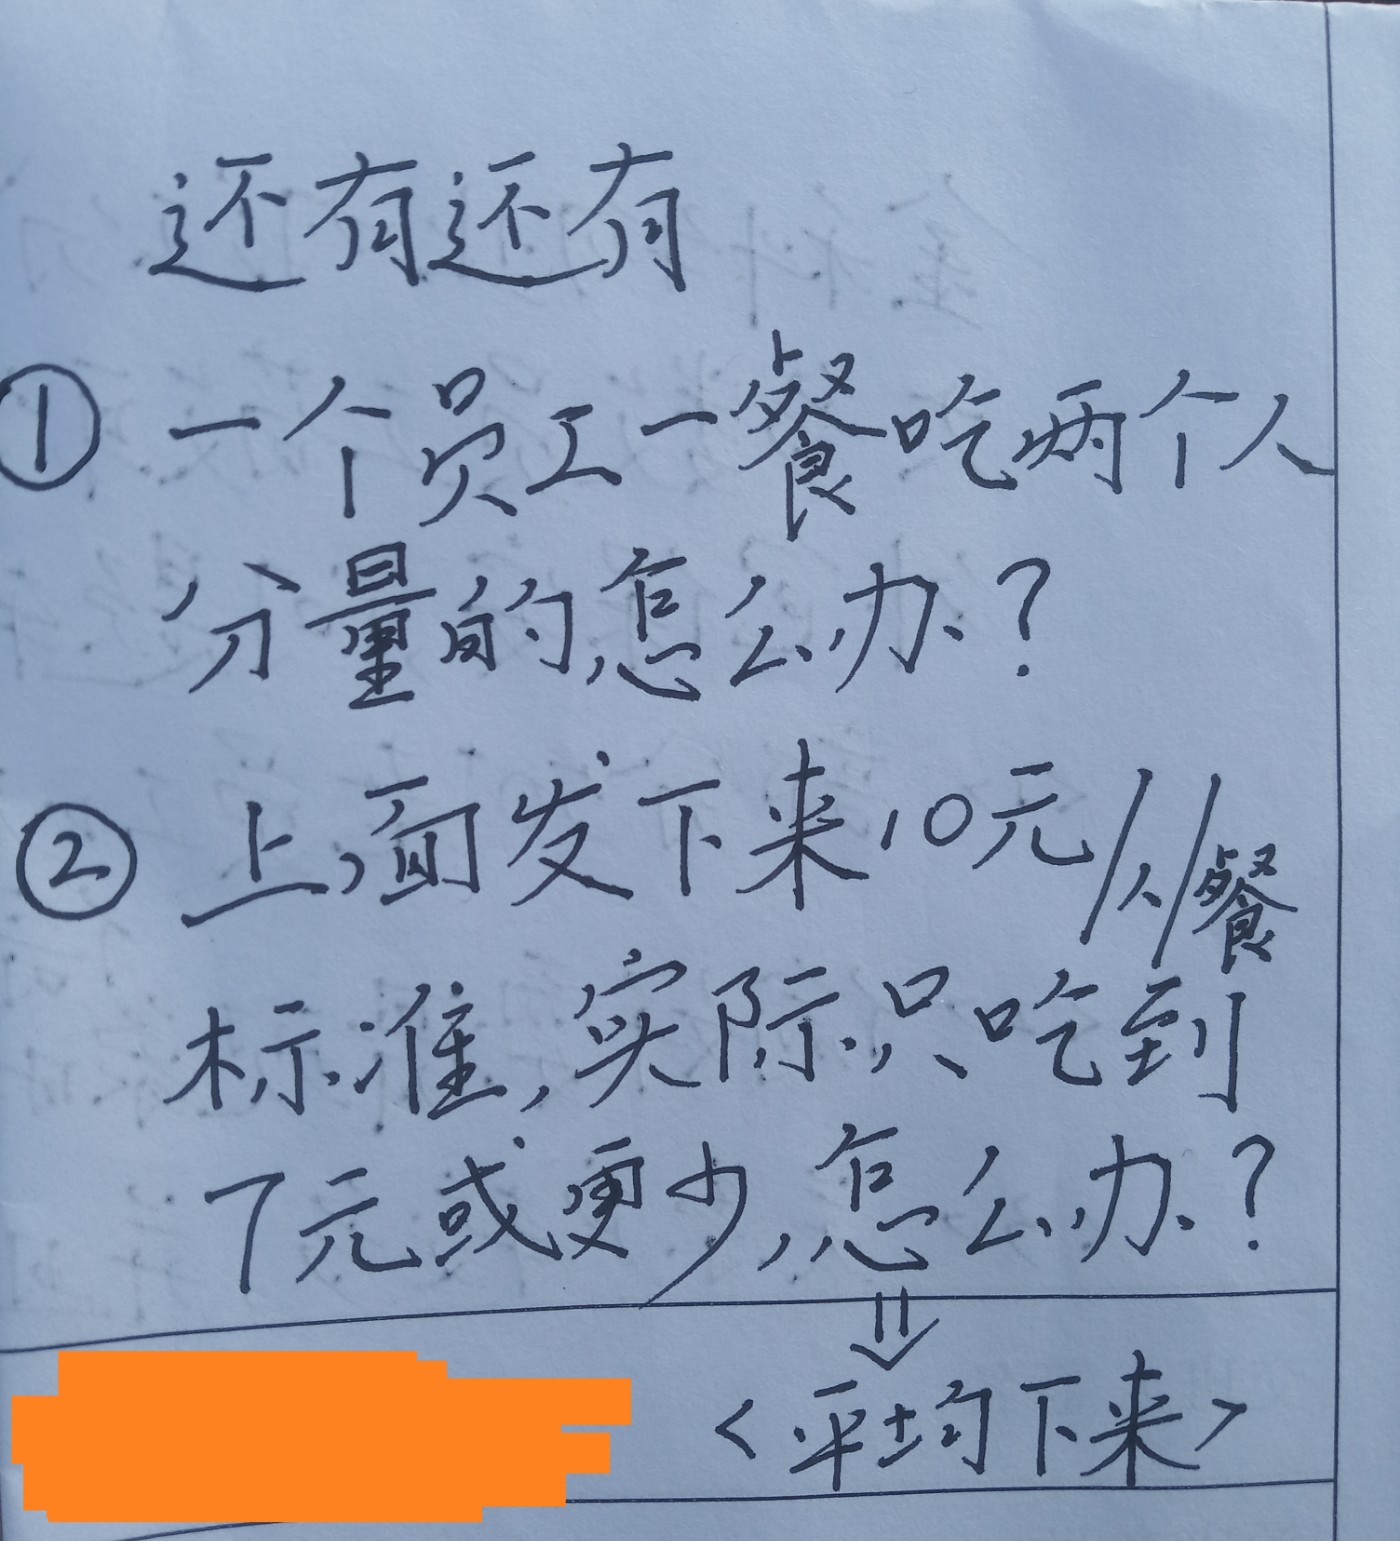 还有还有
① 一个员工一餐吃两个人
分量的,怎么办?
② 上面发下来10元/人/餐
标准,实际只吃到
7元或更少,怎么办?
⇓
<平均下来>